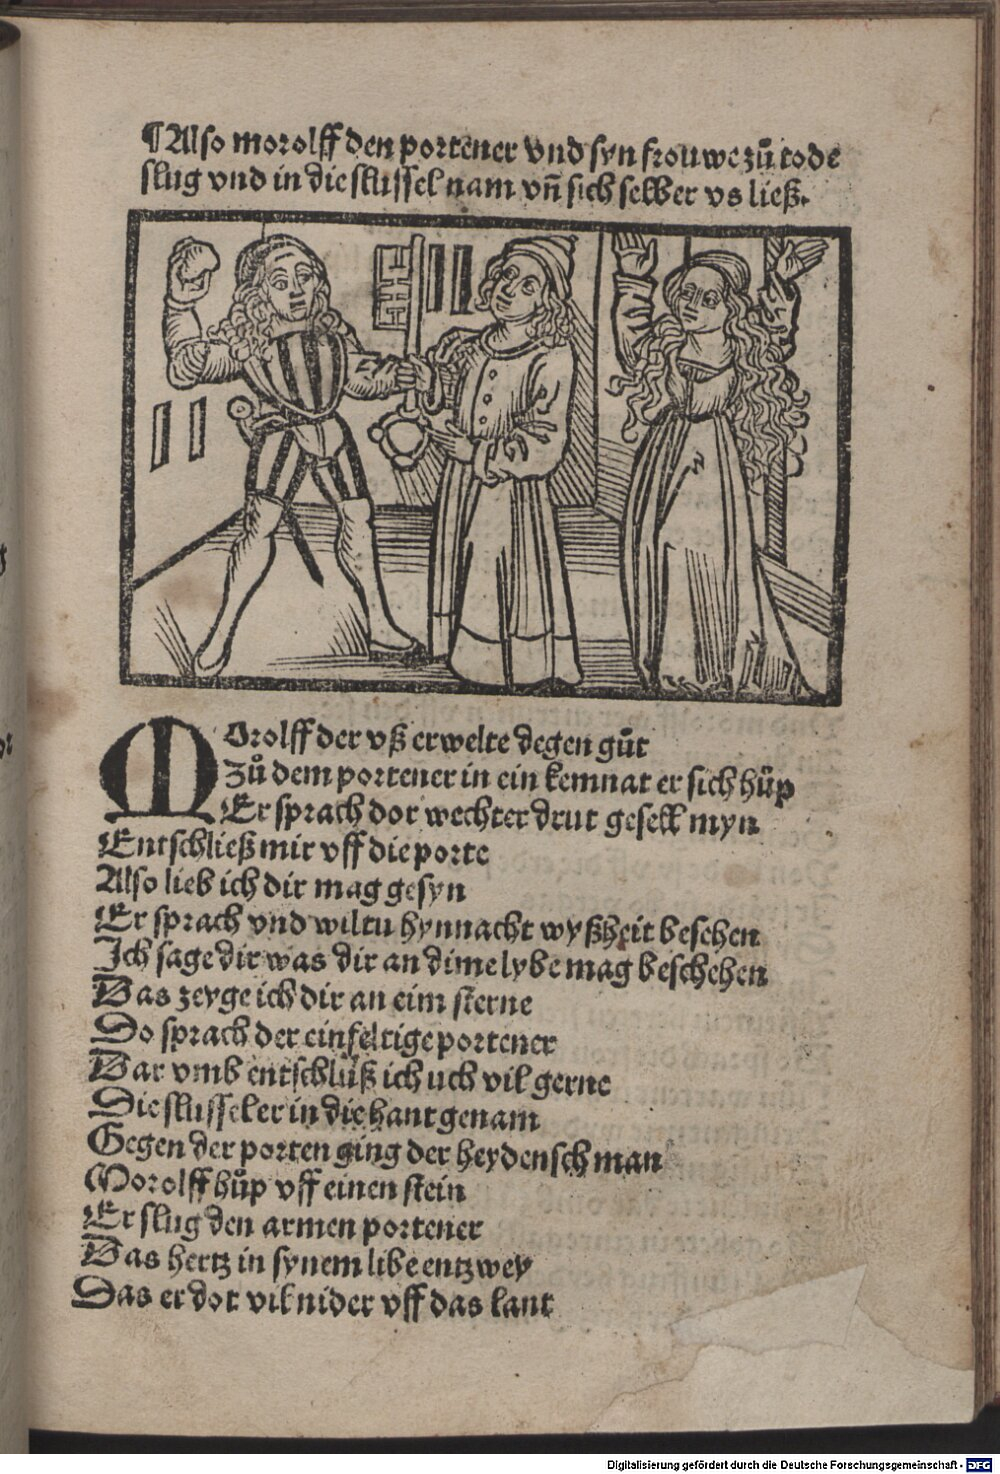 ¶Also morolff den portener vnd syn frouwe zů tode
slug vnd in die slussel nam vñ sich selber vs ließ.
MOrolff der vß erwelte degen gůt
Zů dem portener in ein kemnat er sich hůp
Er sprach dot wechter drut gesell myn
Entschließ mir vff die porte
Also lieb ich dir mag gesyn
Er sprach vnd wiltu hynnacht wyßheit besehen
Ich sage dir was dir an dime lybe mag beschehen
Das zeyge ich dir an eim sterne
Do sprach der einfeltige portener
Dar vmb entschlüß ich uch vil gerne
Die slussel er in die hant genam
Gegen der porten ging der heydensch man
Morolff hůp vff einen stein
Er slug den armen portener
Das hertz in synem libe entzwey
Das er dot vil nider vff das lant
Digitalisierung gefördert durch die Deutsche Forschungsgemeinschaft - DFG